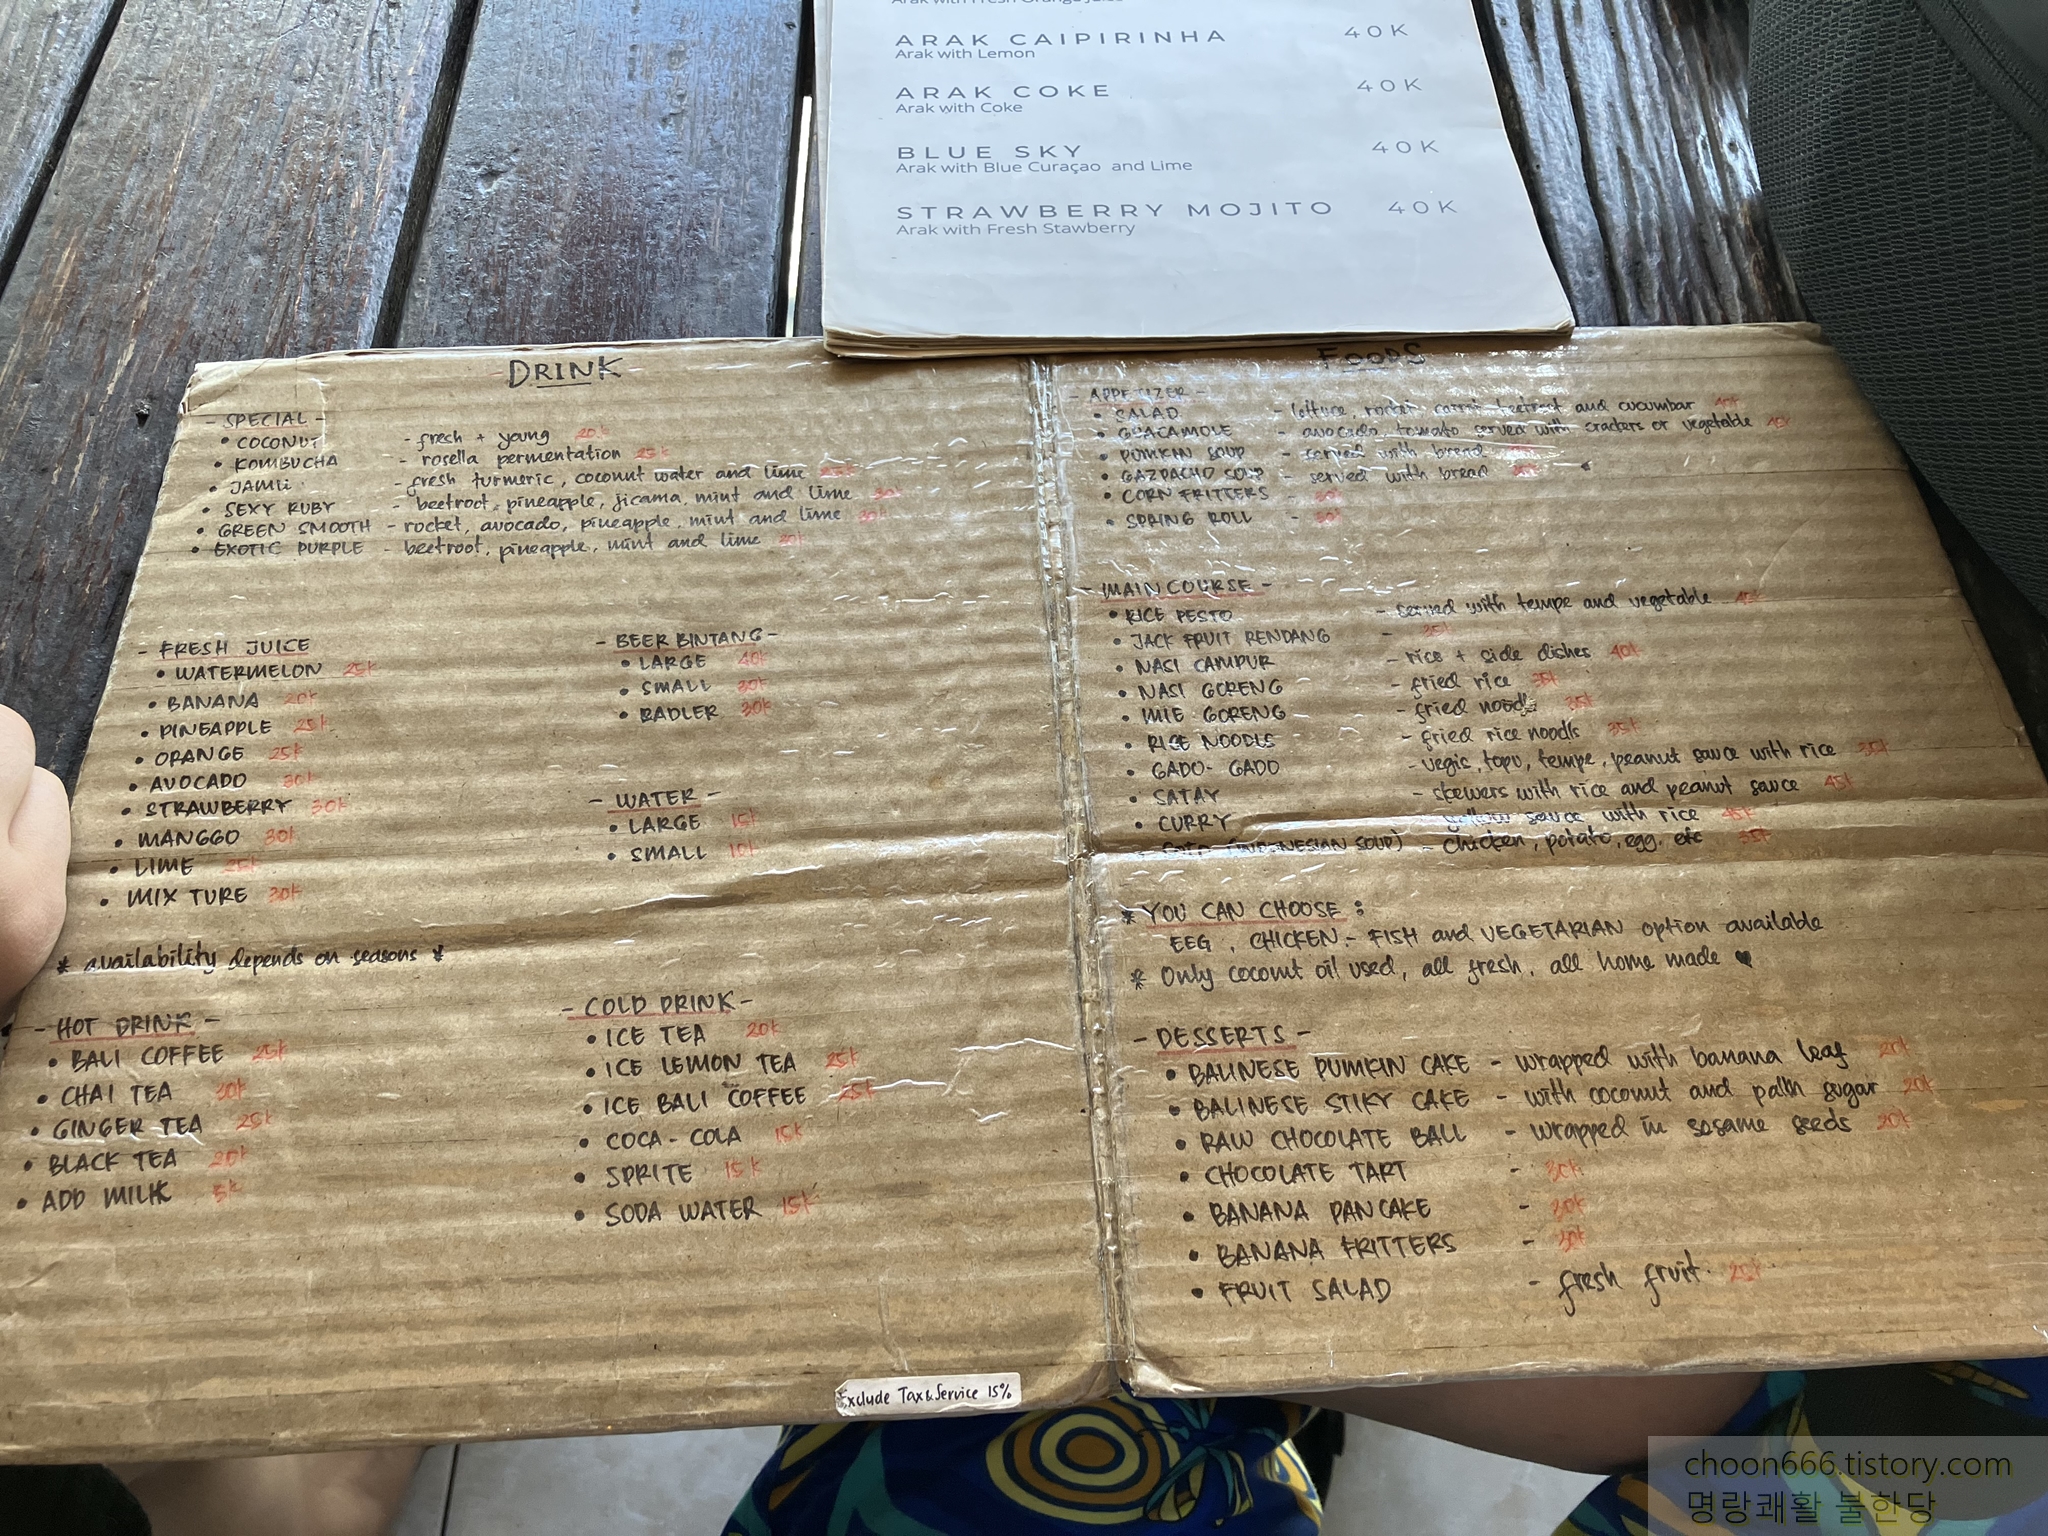 ARAK CAIPIRINHA 40K
Arak with Lemon
ARAK COKE 40K
Arak with Coke
BLUE SKY 40K
Arak with Blue Curaçao and Lime
STRAWBERRY MOJITO 40K
Arak with Fresh Stawberry
DRINK
- SPECIAL -
• COCONUT - fresh + young 20k
• KOMBUCHA - rosella permentation 25k
• JAMU - fresh turmeric, coconut water and lime 25k
• SEXY RUBY - beetroot, pineapple, jicama, mint and lime 30k
• GREEN SMOOTH - rocket, avocado, pineapple, mint and lime 30k
• EXOTIC PURPLE - beetroot, pineapple, mint and lime
- FRESH JUICE
• WATERMELON 25k
• BANANA 20k
• PINEAPPLE 25k
• ORANGE 25k
• AVOCADO 30k
• STRAWBERRY 30k
• MANGGO 30k
• LIME 25k
• MIX TURE 30k
- BEER BINTANG -
• LARGE 40k
• SMALL 30k
• RADLER 30k
- WATER -
• LARGE 15k
• SMALL 10k
* availability depends on seasons *
- HOT DRINK -
• BALI COFFEE 25k
• CHAI TEA 30k
• GINGER TEA 25k
• BLACK TEA 20k
• ADD MILK 5k
- COLD DRINK -
• ICE TEA 20k
• ICE LEMON TEA 25k
• ICE BALI COFFEE 25k
• COCA-COLA 15k
• SPRITE 15k
• SODA WATER 15k
Exclude Tax & Service 15%
FOODS
- APPETIZER -
• SALAD - lettuce, rocket carrot beetroot and cucumbar 40k
• GUACAMOLE - avocado, tomato served with crackers or vegetable 40k
• PUMKIN SOUP - served with bread
• GAZPACHO SOUP - served with bread
• CORN FRITTERS - 30k
• SPRING ROLL - 30k
- MAIN COURSE -
• RICE PESTO - served with tempe and vegetable 45k
• JACK FRUIT RENDANG - 35k
• NASI CAMPUR - rice + side dishes 40k
• NASI GORENG - fried rice 35k
• MIE GORENG - fried noodls 35k
• RICE NOODLS - fried rice noodls 35k
• GADO-GADO - vegie, topu, tempe, peanut sauce with rice 35k
• SATAY - skewers with rice and peanut sauce 45k
• CURRY - yellow sauce with rice 45k
• SOTO (INDONESIAN SOUP) - chicken, potato, egg, etc 35k
* YOU CAN CHOOSE :
EEG, CHICKEN - FISH and VEGETARIAN option available
* Only coconut oil used, all fresh, all home made ♥
- DESSERTS -
• BALINESE PUMKIN CAKE - wrapped with banana leaf 20k
• BALINESE STIKY CAKE - with coconut and palm sugar 20k
• RAW CHOCOLATE BALL - wrapped in sesame seeds 20k
• CHOCOLATE TART - 30k
• BANANA PANCAKE - 30k
• BANANA FRITTERS - 30k
• FRUIT SALAD - fresh fruit 25k
choon666.tistory.com
명랑쾌활 불한당